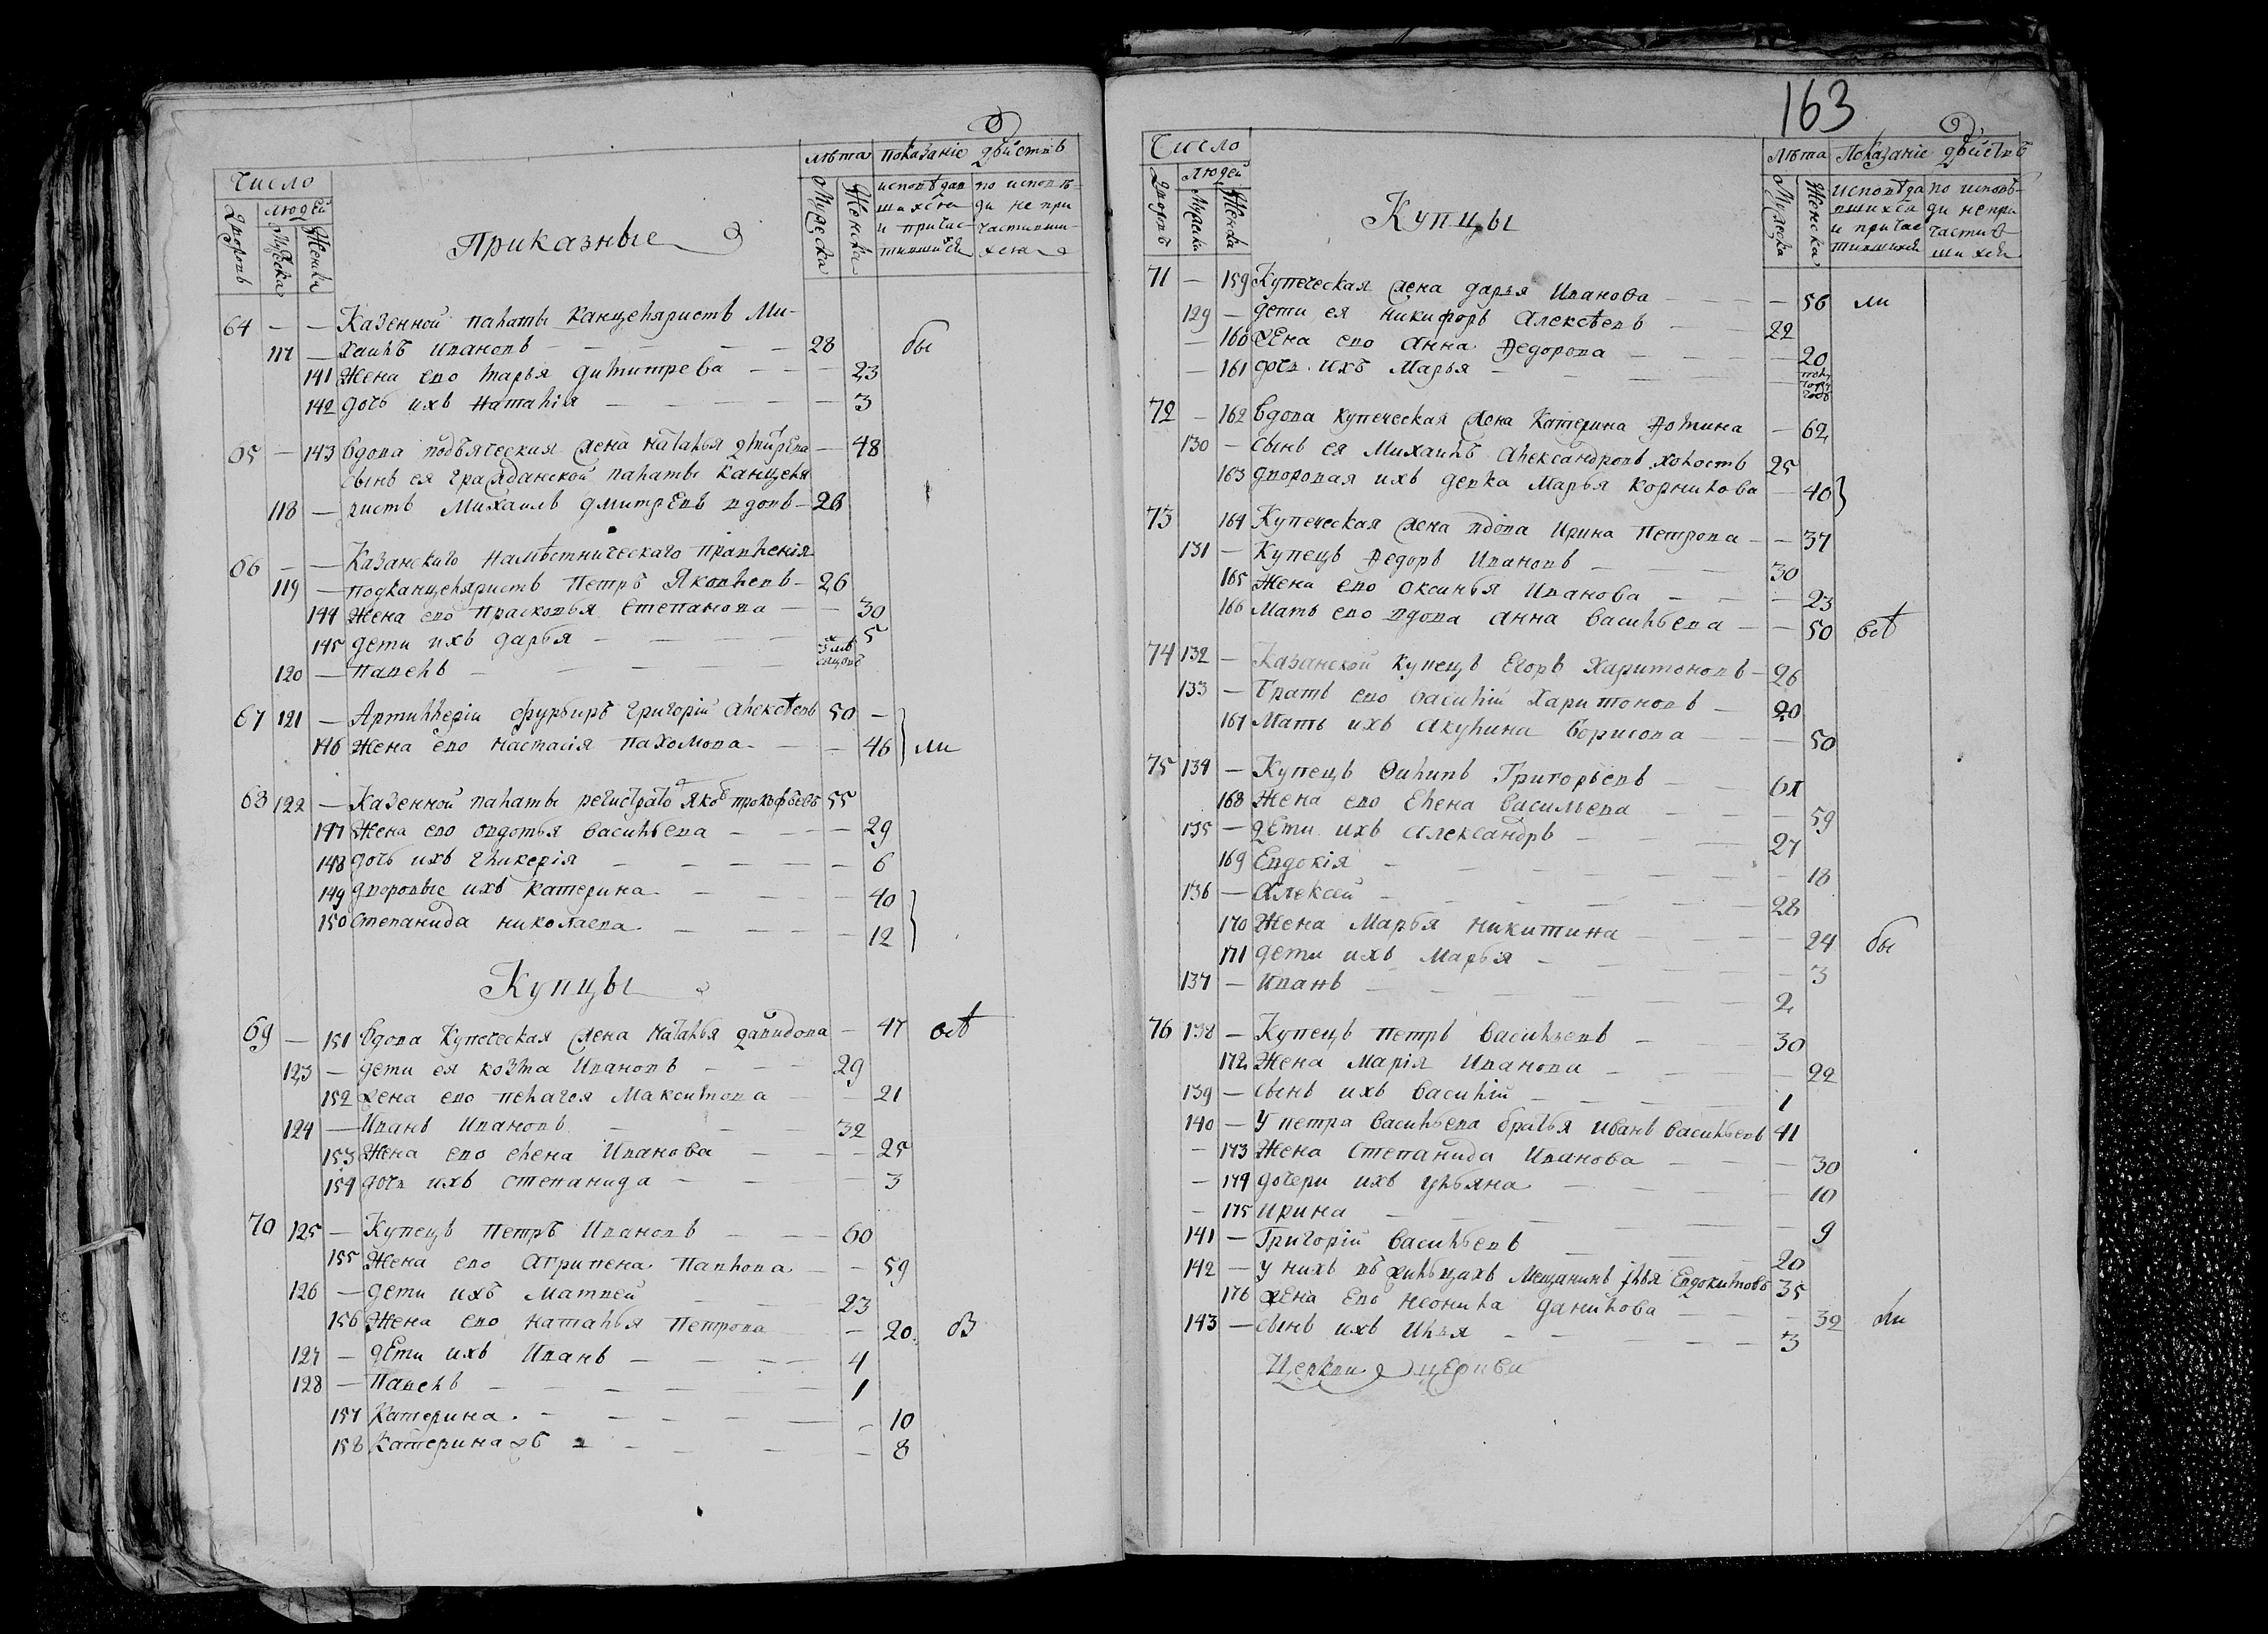 Число
Дворовъ
людей
Мужеска
Женска
Приказные
лѣта
Мужеска
Женска
показаніе действъ
исповѣдав
шихся
и причас
тившихся
по исповѣ-
ди не при
частивши-
хся
64 — — Казенной палаты Канцеляристъ Ми-
117 — хаилъ Ивановъ — 28 бы
141 Жена ево Марья Димитрева — 23
142 дочь ихъ Наталія — 3
65 — 143 Вдова подъяческая жена Наталья — 48
сынъ ея Гражданской палаты Канцеля
118 — ристъ Михаилъ Дмитревъ вдовъ — 26
66 — — Казанскаго Намѣстническаго правленія
119 — подканцеляристъ Петръ Яковлевъ — 26
144 Жена ево Прасковья Степанова — 30
145 дети ихъ Дарья — 5
120 — Павелъ —
67 121 — Артиллеріи фурьиръ Григорій Алексѣевъ 50 —
146 Жена ево Настасія Пахомова — 46 ли
68 122 — Казенной палаты регистрато Яковъ Прокофьевъ 55
147 Жена ево Овдотья Васильева — 29
148 дочь ихъ Гликерія — 6
149 дворовые ихъ Катерина — 40
150 Степанида Николаева — 12
Купцы
69 — 151 Вдова Купеческая жена Наталья Давидова — 47 всѣ
123 — дети ея Козма Ивановъ — 29
152 жена ево Пелагея Максимова — 21
124 — Иванъ Ивановъ — 32
153 Жена ево Елена Иванова — 25
154 дочь ихъ Степанида — 3
70 125 — Купецъ Петръ Ивановъ — 60
155 Жена ево Агрипена Павлова — 59
126 — дети ихъ Матвей — 23
156 Жена ево Наталья Петрова — 20
127 — дети ихъ Иванъ — 4
128 — Павелъ — 1
157 Катерина — 10
158 Катерина жъ — 8
163
Число
Дворовъ
людей
Мужеска
Женска
Купцы
Лѣта
Мужеска
Женска
Показаніе действъ
исповѣда
вшихся
и причас
тившихся
по исповѣ-
ди непри
частив-
шихся
71 — 159 Купеческая жена Дарья Иванова — 56 ли
129 — дети ея Никифоръ Алексѣевъ — 22
— 160 жена ево Анна Федорова — 20
— 161 дочь ихъ Марья —
72 — 162 Вдова купеческая жена Катерина Фомина — 62
130 — сынъ ея Михаилъ Александровъ холостъ 25
163 дворовая ихъ девка Марья Корнилова — 40
73 164 Купеческая жена вдова Ирина Петрова — 37
131 — Купецъ Федоръ Ивановъ — 30
165 Жена ево Оксинья Иванова — 23
166 Мать ево вдова Анна Васильева — 50 всѣ
74 132 — Казанской Купецъ Егоръ Харитоновъ — 26
133 — Братъ ево Василій Харитоновъ — 20
167 Мать ихъ Акулина Борисова — 50
75 134 — Купецъ Филипъ Григорьевъ —
168 Жена ево Елена Васильева — 59
135 — дети ихъ Александръ — 27
169 Евдокія — 18
136 — Алексей — 28
170 Жена Марья Никитина — 24 бы
171 дети ихъ Марья — 3
137 — Иванъ — 2
76 138 — Купецъ Петръ Васильевъ — 30
172 Жена Марія Иванова — 22
139 — сынъ ихъ Василій — 1
140 — У Петра Васильева братья Иванъ Васильевъ 41
— 173 Жена Степанида Иванова — 30
— 174 дочери ихъ Ульяна — 10
— 175 Ирина — 9
141 — Григорій Васильевъ — 20
142 — у нихъ въ жильцахъ Мещанинъ Илья Евдокимовъ 35
176 жена ево Неонила Данилова — 32 ли
143 — сынъ ихъ Илья — 3
Церкви церкви